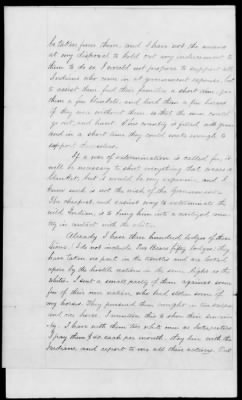 be taken from them, and I have not the means
at my disposal to hold out any inducement to
them to do so. I would not propose to support all
Indians who came in at government expense, but
to assist them feed their families a short time, give
them a few blankets, and lend them a few horses
if they are without them so that the men could
go out and hunt. This country is filled with game
and in a short time they could rob enough to
support themselves.
If a war of extermination is called for, it
will be necessary to shoot everything that wears a
blanket, but it would be very expensive, and I
know such is not the wish of the Government.
The cheapest, and easiest way to exterminate the
wild Indian, is to bring him into a civilized coun-
try in contact with the whites.
Already I have three hundred lodges of these
Sioux. I do not include Two Bears fifty lodges, they
have taken no part in the councils and are looked
upon by the hostile nations in the same light as the
whites. I sent a small party of them against some
few of their own nation, who had stolen some of
my horses. They pursued them, caught
and one horse. I mention this to show their sincerity
I have with them two white men as Interpreters
I pay them $50 each per month. They live with the
Indians, and report to me all their actions. Out